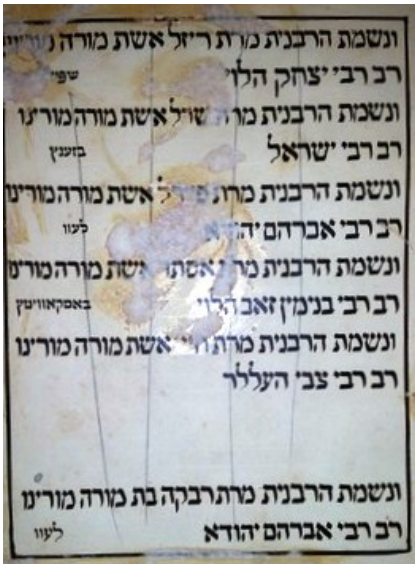 ונשמת הרבנית מרת ריזל אשת מורה מורינו
רב רבי יצחק הלוי שפיץ
ונשמת הרבנית מרת אשת מורה מורינו
רב רבי ישראל בזענץ
ונשמת הרבנית מרת אשת מורה מורינו
רב רבי אברהם יהודא לעוו
ונשמת הרבנית מרת אסתר אשת מורה מורינו
רב רבי בנימין זאב הלוי באסקאוויטץ
ונשמת הרבנית מרת אשת מורה מורינו
רב רבי צבי העללר
ונשמת הרבנית מרת רבקה בת מורה מורינו
רב רבי אברהם יהודא לעוו